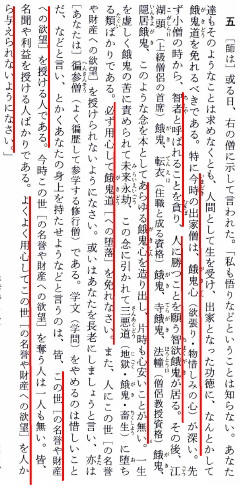 五
〔師は〕或る日、右の僧に示して言われた。「私も悟りなどということは知らない。あなた
達もそのようなことは求めなくとも、人間として生を受け、出家となった功徳に、なんとかして
餓鬼道を免れるべきである。特に今時の出家僧は、餓鬼心(欲張り・物惜しみの心)が深い。先
ず小僧の時から、智者と呼ばれることを貪り、人に勝つことを願う智欲餓鬼が居る。その後、江
湖頭(上級僧侶の首席)餓鬼、転衣(住職と成る資格)餓鬼、寺餓鬼、法幢(僧侶教授資格)餓鬼、
隠居餓鬼。このような念を本としてあらゆる餓鬼心を造り出し、片時も心安いことが無い。一生
を虚しく餓鬼の苦に責められて、未来永劫、この念に引かれて三悪道(地獄・餓鬼・畜生)に堕ち
る類ばかりである。必ず用心して餓鬼道〔への堕落〕を免れなさい。また、人にこの世〔の名誉
や財産への欲望〕を授けられないようになさい。或いはあなたを長老にしましょうと言い、亦は
〔あなたは〕徧参僧(よく徧歴して参学する修行僧)である。学文(学問)をやめるのは惜しいこと
だ、などと言い、とかくあなたの身上を持たせようなどと言うのは、皆、この世〔の名誉や財産
への欲望〕を授ける人である。今時この世〔の名誉や財産への欲望〕を奪う人は一人も無い。皆、
名聞や利益を授ける人ばかりである。よくよく用心してこの世〔の名誉や財産への欲望〕を人か
ら与えられないようになさい」